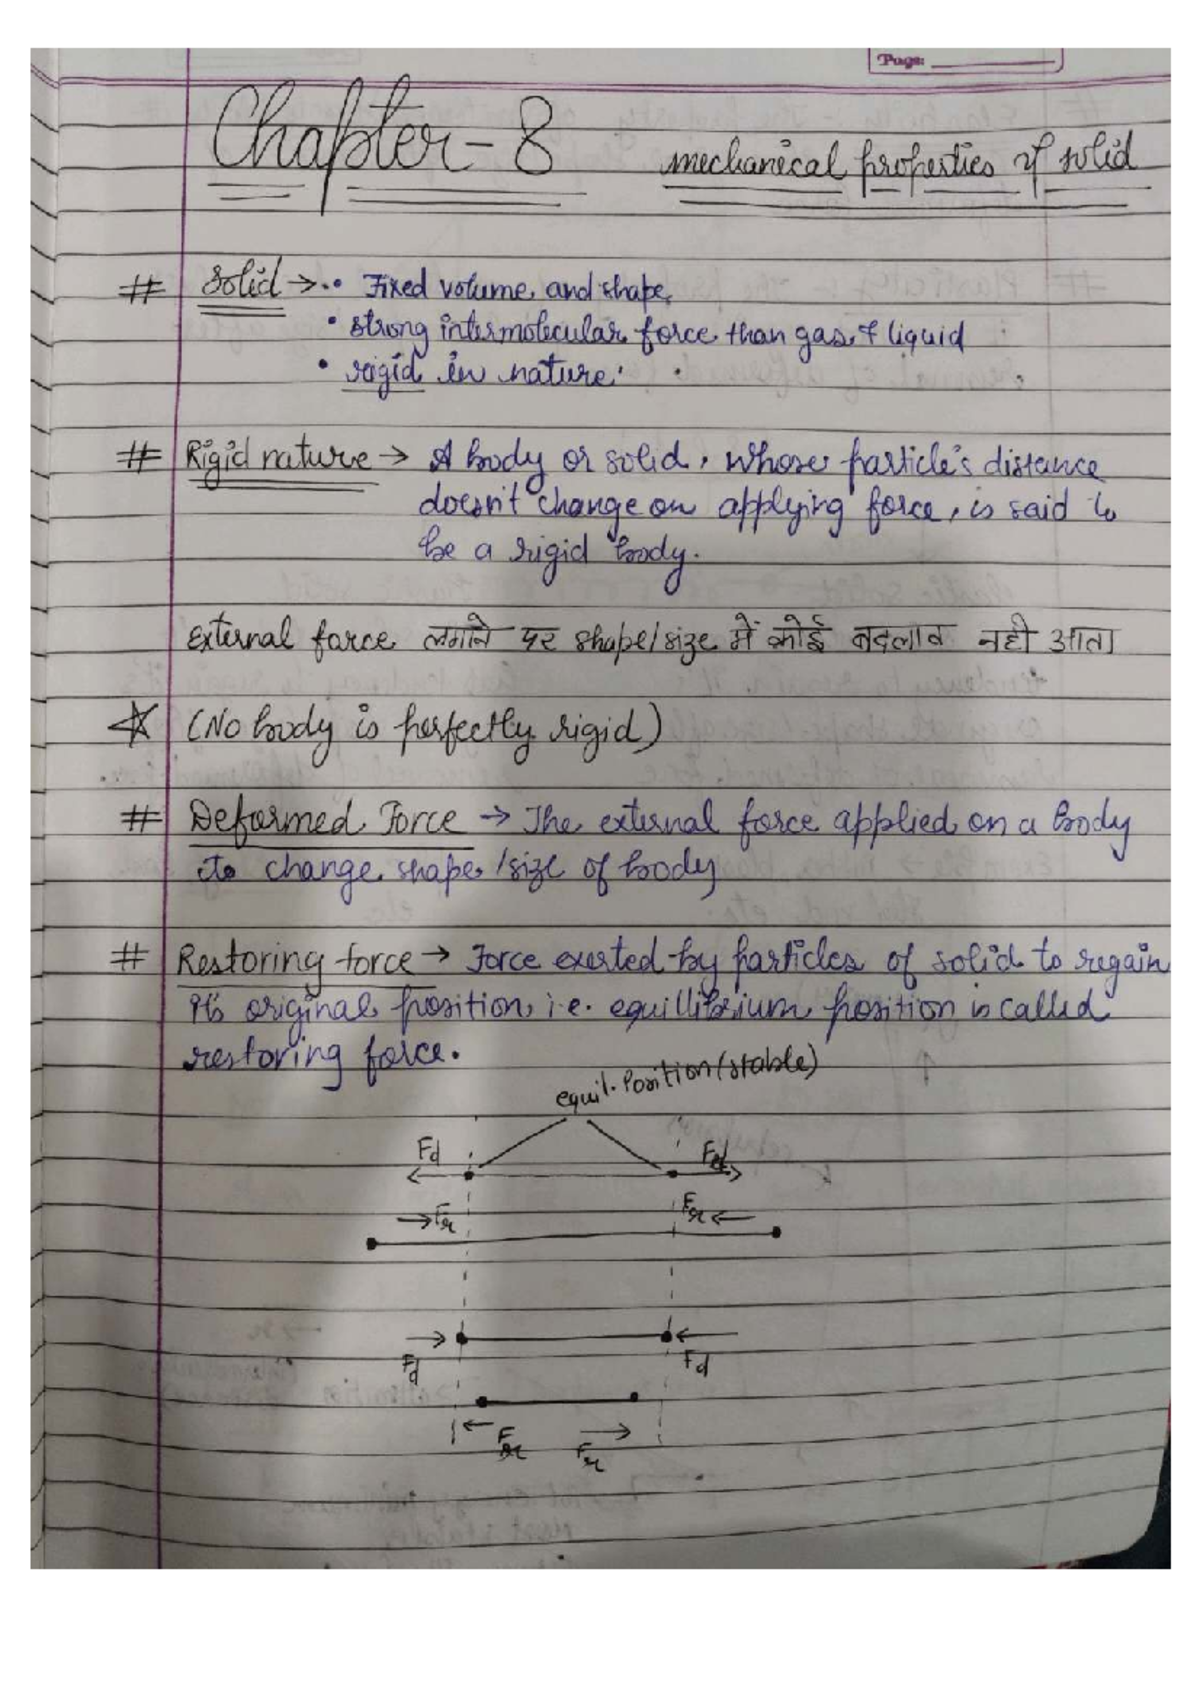 Page:
Chapter-8 mechanical properties of solid
# Solid → • Fixed volume and shape,
• strong intermolecular force than gas & liquid
• rigid in nature.
# Rigid nature → A body or solid, whose particle's distance
doesn't change on applying force, is said to
be a rigid body.
External force लगाने पर shape/size में कोई बदलाव नही आता
☆ (No body is perfectly rigid)
# Deformed Force → The external force applied on a body
to change shape/size of body
# Restoring force → Force exerted by particles of solid to regain
its original position, i.e. equillibrium position is called
restoring force.
equil. Position (stable)
Fd Fd
→Fr Fr←
→ ←
Fd Fd
← →
Fr Fr